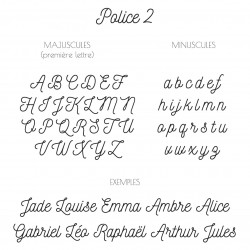 Police 2
MAJUSCULES
(première lettre)
A B C D E F
G H I J K L M N
O P Q R S T
U V W X Y Z
MINUSCULES
a b c d e f
h i j k l m n
o p q r s t u
v w x y z
EXEMPLES
Jade Louise Emma Ambre Alice
Gabriel Léo Raphaël Arthur Jules